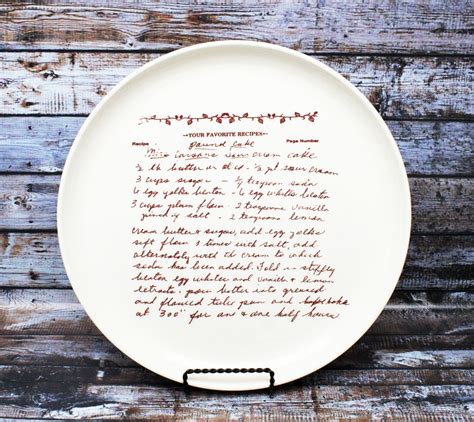 --YOUR FAVORITE RECIPES--
Recipe Pound Cake Page Number
Miss Carsons Sour Cream Cake
1/2 lb butter or oleo - 1/2 pt sour cream
3 cups sugar - 1/2 teaspoon soda
6 egg yolks beaten - 6 egg whites beaten
3 cups plain flour - 2 teaspoons vanilla
pinch of salt - 2 teaspoons lemon
Cream butter & sugar, add egg yolks
sift flour 3 times with salt, add
alternately with the cream to which
soda has been added. Fold in stiffly
beaten egg whites and vanilla & lemon
extracts. pour batter into greased
and floured tube pan and bake
at 300° for one & one half hours